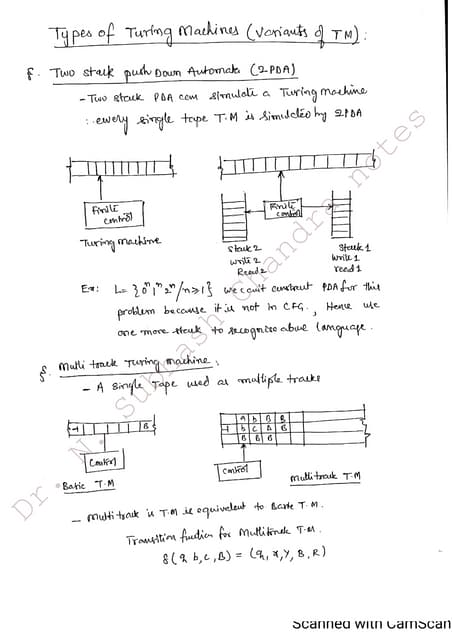 Types of Turing Machines (Variants of TM):
§. Two stack push Down Automata (2PDA)
- Two stack PDA can simulate a Turing machine
∴ every single tape T.M is simulated by 2PDA
Finite control
Turing machine
Finite control
Stack 2
write 2
Read 2
Stack 1
write 1
read 1
Ex: L = {0ⁿ1ⁿ2ⁿ/n≥1} we can't construct PDA for this
problem because it is not in CFG, Hence use
one more stack to recognize above language.
§. Multi track Turing machine:
- A single Tape used as multiple tracks
B
Control
Basic T.M
A b B B
b C A B
B B B
Control
multi track T.M
- Multi track is T.M is equivalent to Basic T.M.
Transition function for Multitrack T.M.
δ(q, b, c, B) = (q, x, y, B, R)
Dr. N. Subhash Chandra notes
Scanned with CamScan